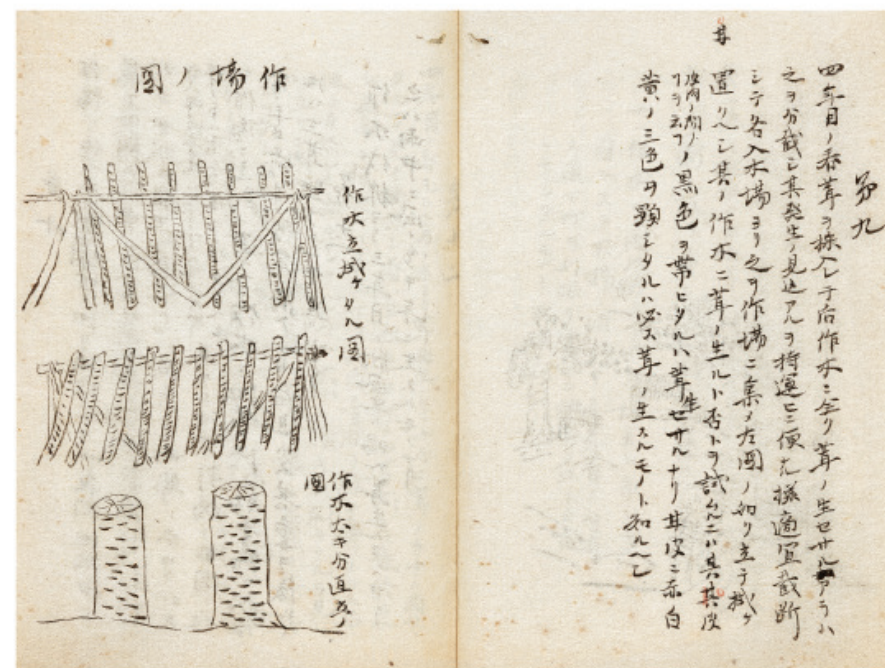 第九
四年目ノ春茸ヲ採入レテ后作木ニ全ク茸ノ生セサルアラハ
之ヲ分截シ其発生ノ見込アルヲ持運ヒニ便ナル様適宜截断
シテ各入木場ヨリ之ヲ作場ニ集メ左図ノ如ク立テ掛ケ
置クヘシ其ノ作木ニ茸ノ生ルト否トヲ試ムルニハ其皮
ノ黒色ヲ帯ヒタルハ茸生セサルナリ其皮ニ赤白
黄ノ三色ヲ顕シタルハ必ス茸ノ生スルモノト知ルヘシ
作場ノ図
作木立掛ケタル図
作木太キ分直立ノ
図